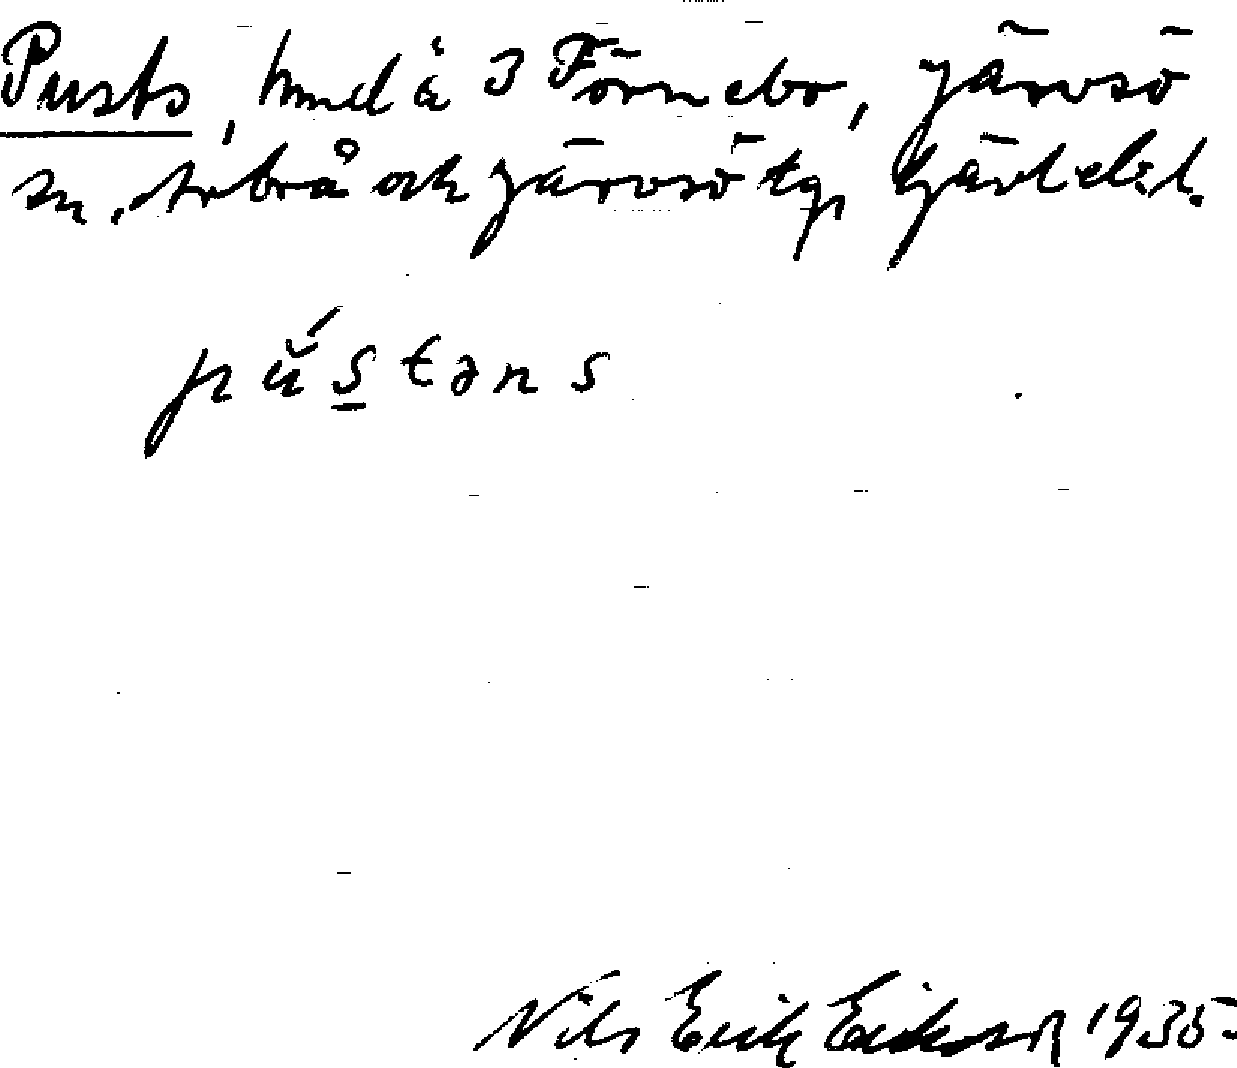 Pusts, hmd å 3 Förnebo, Järvsö
sn, Arbrå och Järvsö tg, Gävl.län.
pŭ́s̲təns
Nils Erik Eriksson 1935